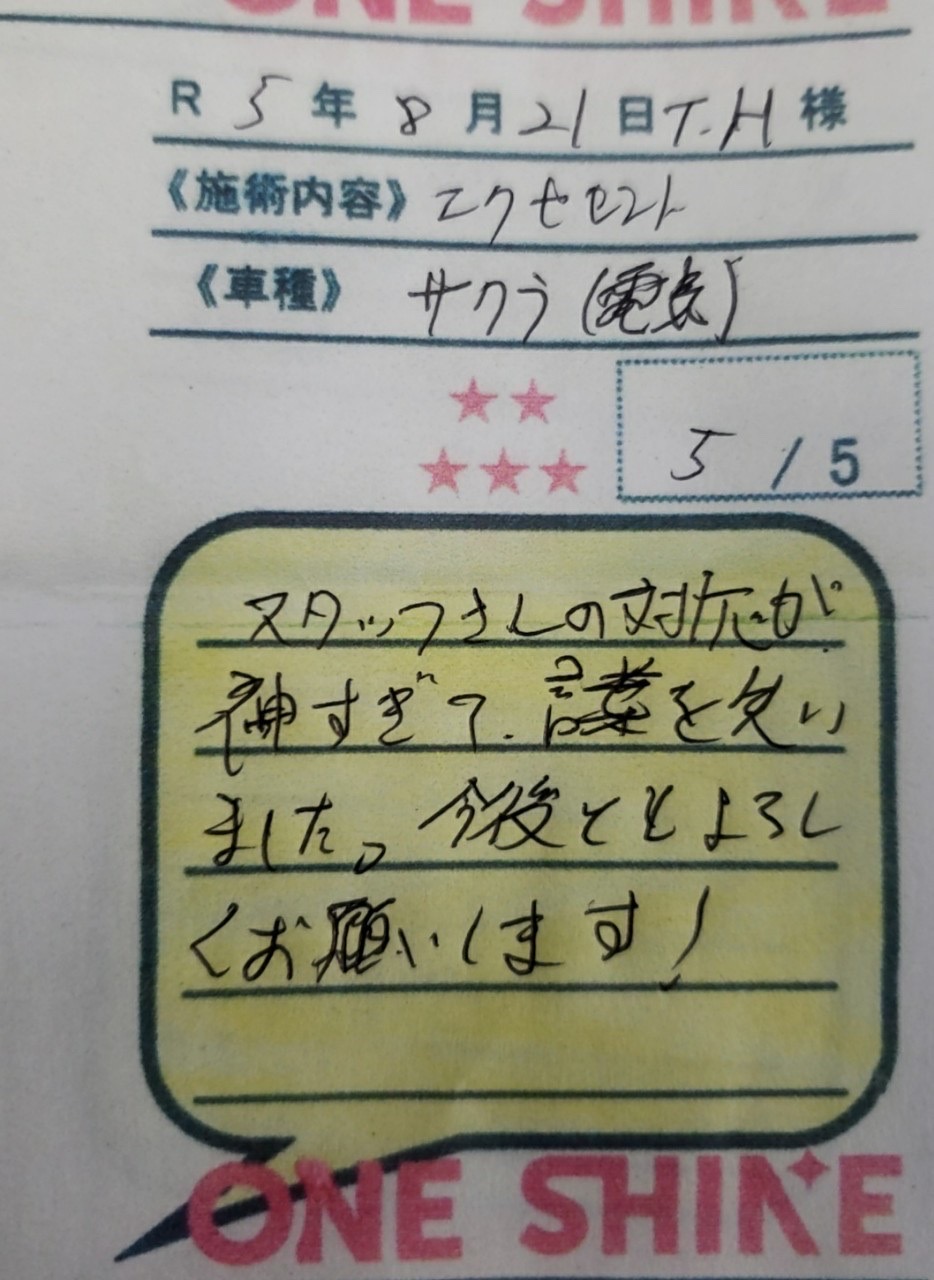 ONE SHINE
R 5年 8月21日 T.H 様
《施術内容》 エクセセント
《車種》 サクラ(電気)
5 / 5
スタッフさんの対応が
神すぎて、言葉を失い
ました。今後ともよろし
くお願いします!
ONE SHINE